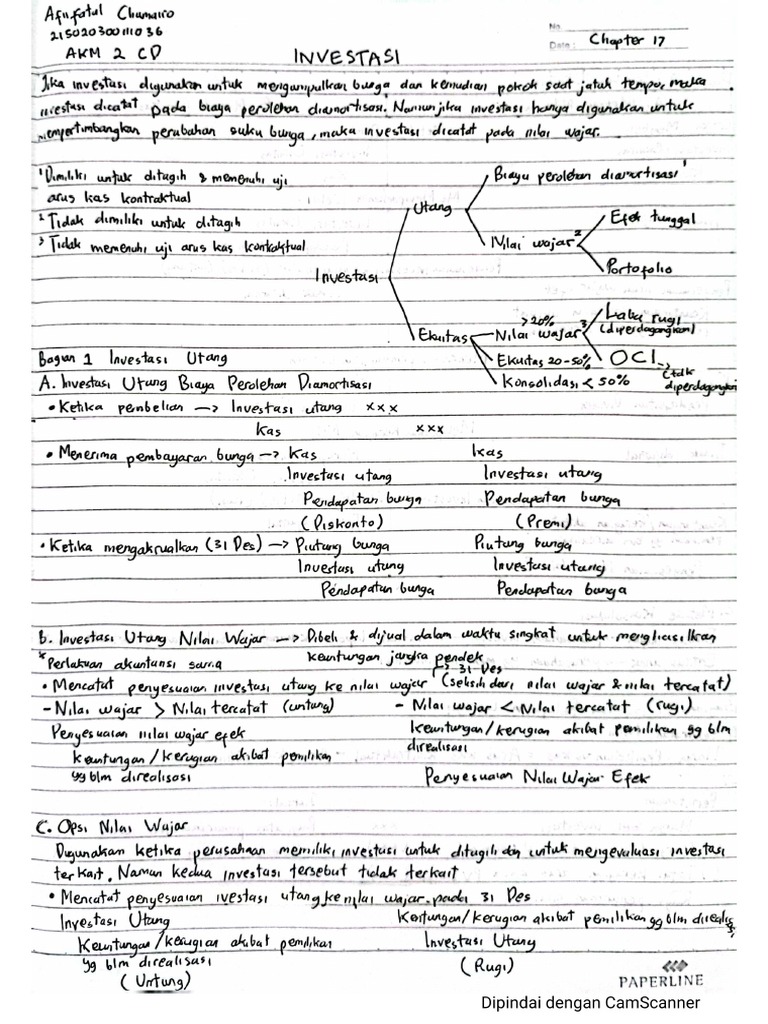 Afufatul Chumairo
215020300111036
AKM 2 CD
No.
Date: Chapter 17
INVESTASI
Jika investasi digunakan untuk mengumpulkan bunga dan kemudian pokok saat jatuh tempo, maka
investasi dicatat pada biaya perolehan diamortisasi. Namun jika investasi hanya digunakan untuk
mempertimbangkan perubahan suku bunga, maka investasi dicatat pada nilai wajar.
¹ Dimiliki untuk ditagih & memenuhi uji
arus kas kontraktual
² Tidak dimiliki untuk ditagih
³ Tidak memenuhi uji arus kas kontraktual
Investasi
Utang
Biaya perolehan diamortisasi ¹
Nilai wajar ²
Efek tunggal
Portofolio
Ekuitas
>20%
Nilai wajar ³
Laba rugi
(diperdagangkan)
OCI → (tdk
diperdagangkan
Ekuitas 20-50%
Konsolidasi < 50%
Bagian 1 Investasi Utang
A. Investasi Utang Biaya Perolehan Diamortisasi
• Ketika pembelian → Investasi utang xxx
Kas xxx
• Menerima pembayaran bunga → Kas Kas
Investasi utang Investasi utang
Pendapatan bunga Pendapatan bunga
(Diskonto) (Premi)
• Ketika mengakrualkan (31 Des) → Piutang bunga Piutang bunga
Investasi utang Investasi utang
Pendapatan bunga Pendapatan bunga
b. Investasi Utang Nilai Wajar → Dibeli & dijual dalam waktu singkat untuk menghasilkan
* Perlakuan akuntansi sama keuntungan jangka pendek
→ 31 Des
• Mencatat penyesuaian investasi utang ke nilai wajar (selisih dari nilai wajar & nilai tercatat)
- Nilai wajar > Nilai tercatat (untung) - Nilai wajar < Nilai tercatat (rugi)
Penyesuaian nilai wajar efek Keuntungan/kerugian akibat pemilikan yg blm
direalisasi
Keuntungan/kerugian akibat pemilikan
yg blm direalisasi Penyesuaian Nilai Wajar Efek
C. Opsi Nilai Wajar
Digunakan ketika perusahaan memiliki investasi untuk ditagih dan untuk mengevaluasi investasi
terkait. Namun kedua investasi tersebut tidak terkait
• Mencatat penyesuaian ivestasi utang ke nilai wajar pada 31 Des
Investasi Utang Keuntungan/kerugian akibat pemilikan yg blm direalisasi
Keuntungan/kerugian akibat pemilikan Investasi Utang
yg blm direalisasi (Rugi)
(Untung)
PAPERLINE
Dipindai dengan CamScanner